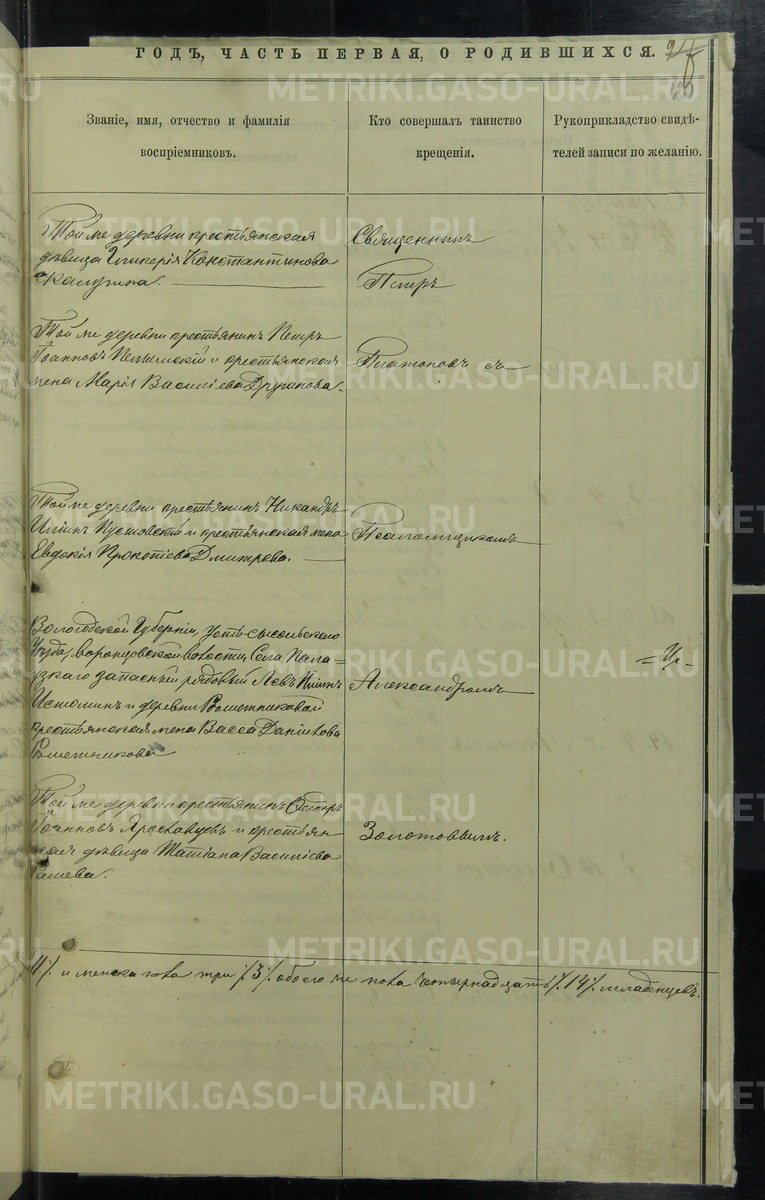 ГОДЪ, ЧАСТЬ ПЕРВАЯ, О РОДИВШИХСЯ.
Званіе, имя, отчество и фамилія
воспріемниковъ.
Кто совершалъ таинство
крещенія.
Рукоприкладство свидѣ-
телей записи по желанію.
Той же деревни крестьянская
дѣвица Гликерія Константинова
Калугина.
Той же деревни крестьянинъ Петръ
Іоанновъ Пелымскій и крестьянская
жена Марія Василіева Друганова.
Той же деревни крестьянинъ Никандръ
Иліинъ Пустовскій и крестьянская жена
Евдокія Прокопіева Дмитрева.
Вологодской Губерніи, Усть-сысольскаго
Уѣзда, Воронцовской волости, Села
запасный рядовый Левъ Иліинъ
Истоминъ и деревни Решетниковой
крестьянская жена Васса Даніилова
Решетникова
Той же деревни крестьянинъ Ѳеодоръ
Іоанновъ Ярославцевъ и крестьян-
ская дѣвица Татіана Василіева
Священникъ
Петръ
Платоновъ съ
Псаломщикомъ
Александромъ
Золотовымъ.
и женска пола три /3/, обоего же пола четырнадцать /14/ младенцевъ.
METRIKI.GASO-URAL.RU